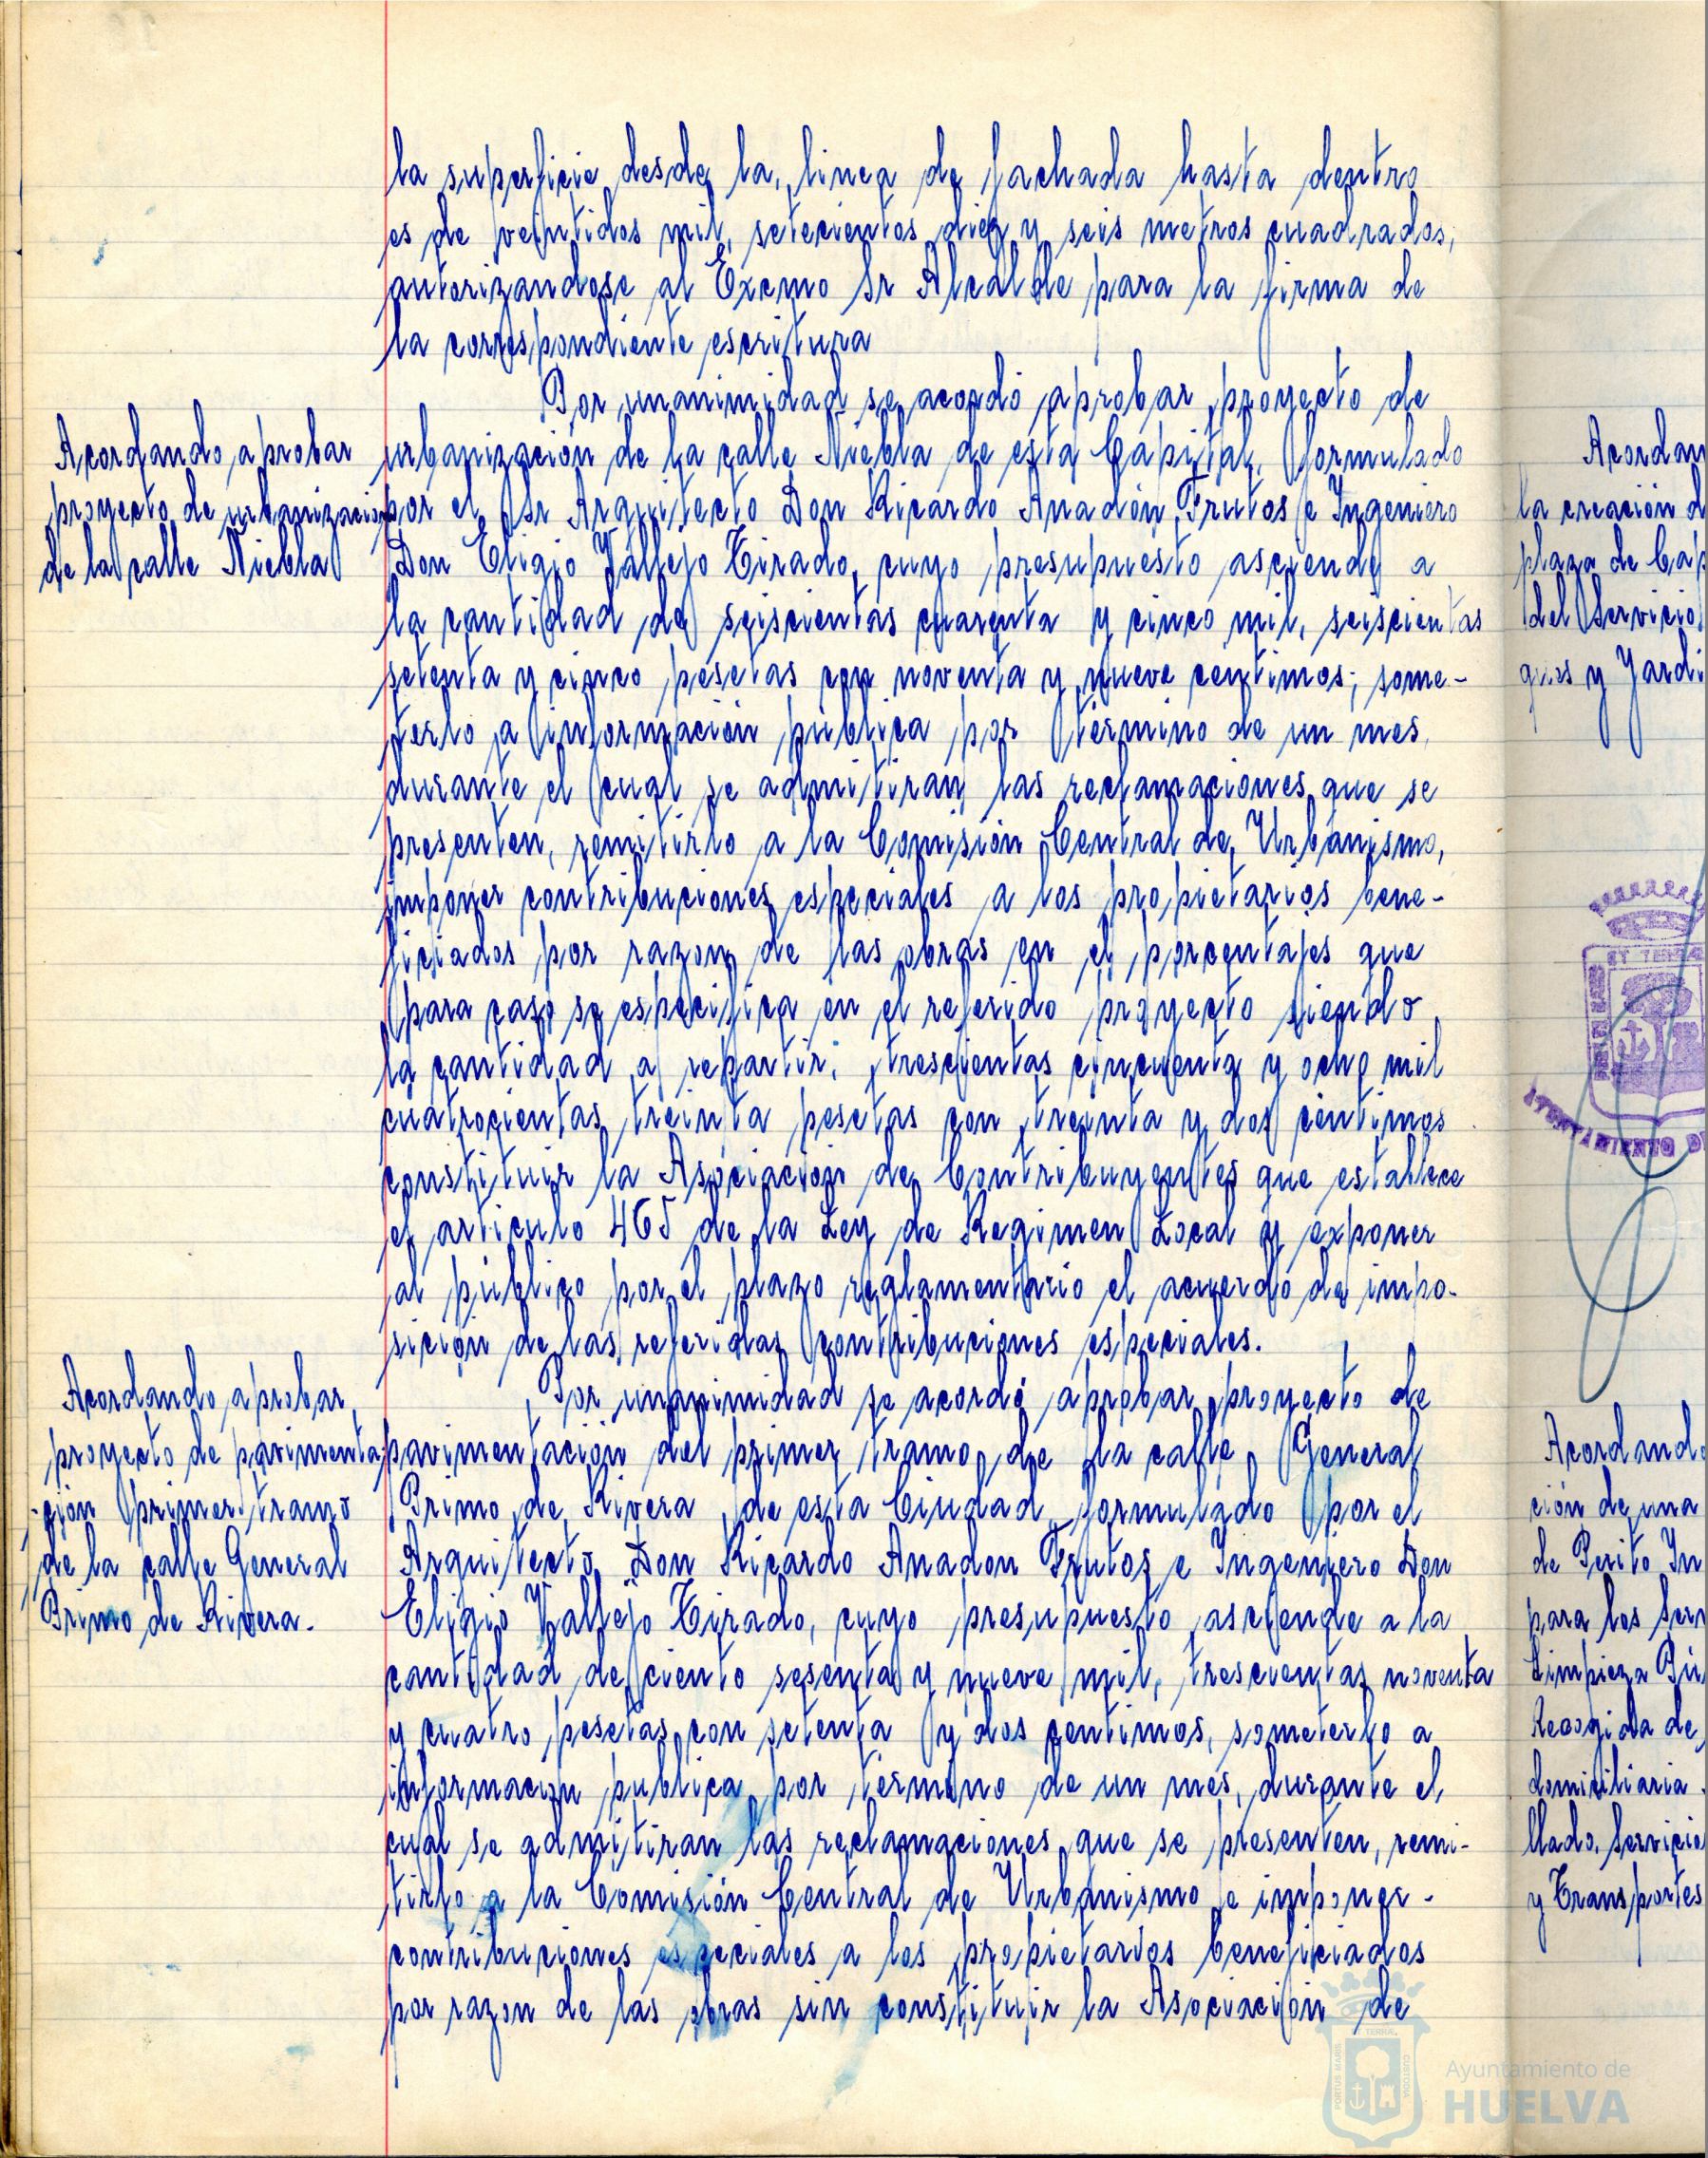 la superficie desde la linea de fachada hasta dentro
es de veintidos mil, setecientos diez y seis metros cuadrados,
autorizandose al Excmo Sr Alcalde para la firma de
la correspondiente escritura
Por unanimidad se acordó aprobar proyecto de
Acordando aprobar
proyecto de urbanización
de la calle Niebla
urbanización de la calle Niebla de esta Capital, formulado
por el Sr Arquitecto Don Ricardo Anadón Frutos e Ingeniero
Don Eligio Vallejo Tirado, cuyo presupuesto asciende a
la cantidad de seiscientas cuarenta y cinco mil, seiscientas
setenta y cinco pesetas con noventa y nueve centimos; some-
terlo a información pública por término de un mes,
durante el cual se admitiran las reclamaciones que se
presenten, remitirlo a la Comisión Central de Urbanismo,
imponer contribuciones especiales a los propietarios bene-
ficiados por razon de las obras en el porcentajes que
para caso se especifica en el referido proyecto siendo
la cantidad a repartir, trescientas cincuenta y ocho mil
cuatrocientas treinta pesetas con treinta y dos centimos
constituir la Asociación de Contribuyentes que establece
el articulo 465 de la Ley de Regimen Local y exponer
al público por el plazo reglamentario el acuerdo de impo-
sición de las referidas contribuciones especiales.
Por unanimidad se acordó aprobar proyecto de
Acordando aprobar
proyecto de pavimenta-
ción primer tramo
de la calle General
Primo de Rivera.
pavimentación del primer tramo de la calle General
Primo de Rivera de esta Ciudad formulado por el
Arquitecto Don Ricardo Anadon Frutos e Ingeniero Don
Eligio Vallejo Tirado, cuyo presupuesto asciende a la
cantidad de ciento sesenta y nueve mil, trescientas noventa
y cuatro pesetas con setenta y dos centimos, someterlo a
información publica por termino de un mes, durante el
cual se admitiran las reclamaciones que se presenten, remi-
tirlo a la Comisión Central de Urbanismo e imponer
contribuciones especiales a los propietarios beneficiados
por razon de las obras sin constituir la Asociación de
Acordan
la creación d
plaza de Cap
del Servicio
ques y Jardi
ET TERRA
AYUNTAMIENTO DE
Acordando
ción de una
de Perito In
para los Ser
Limpieza Pú
Recogida de
domiciliaria
llado, Servicio
y Transportes
PORTUS MARIS ET TERRAE CUSTODIA
Ayuntamiento de
HUELVA